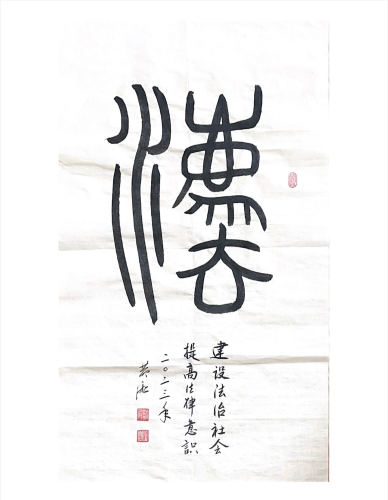 灋
建设法治社会
提高法律意识
二〇二三年